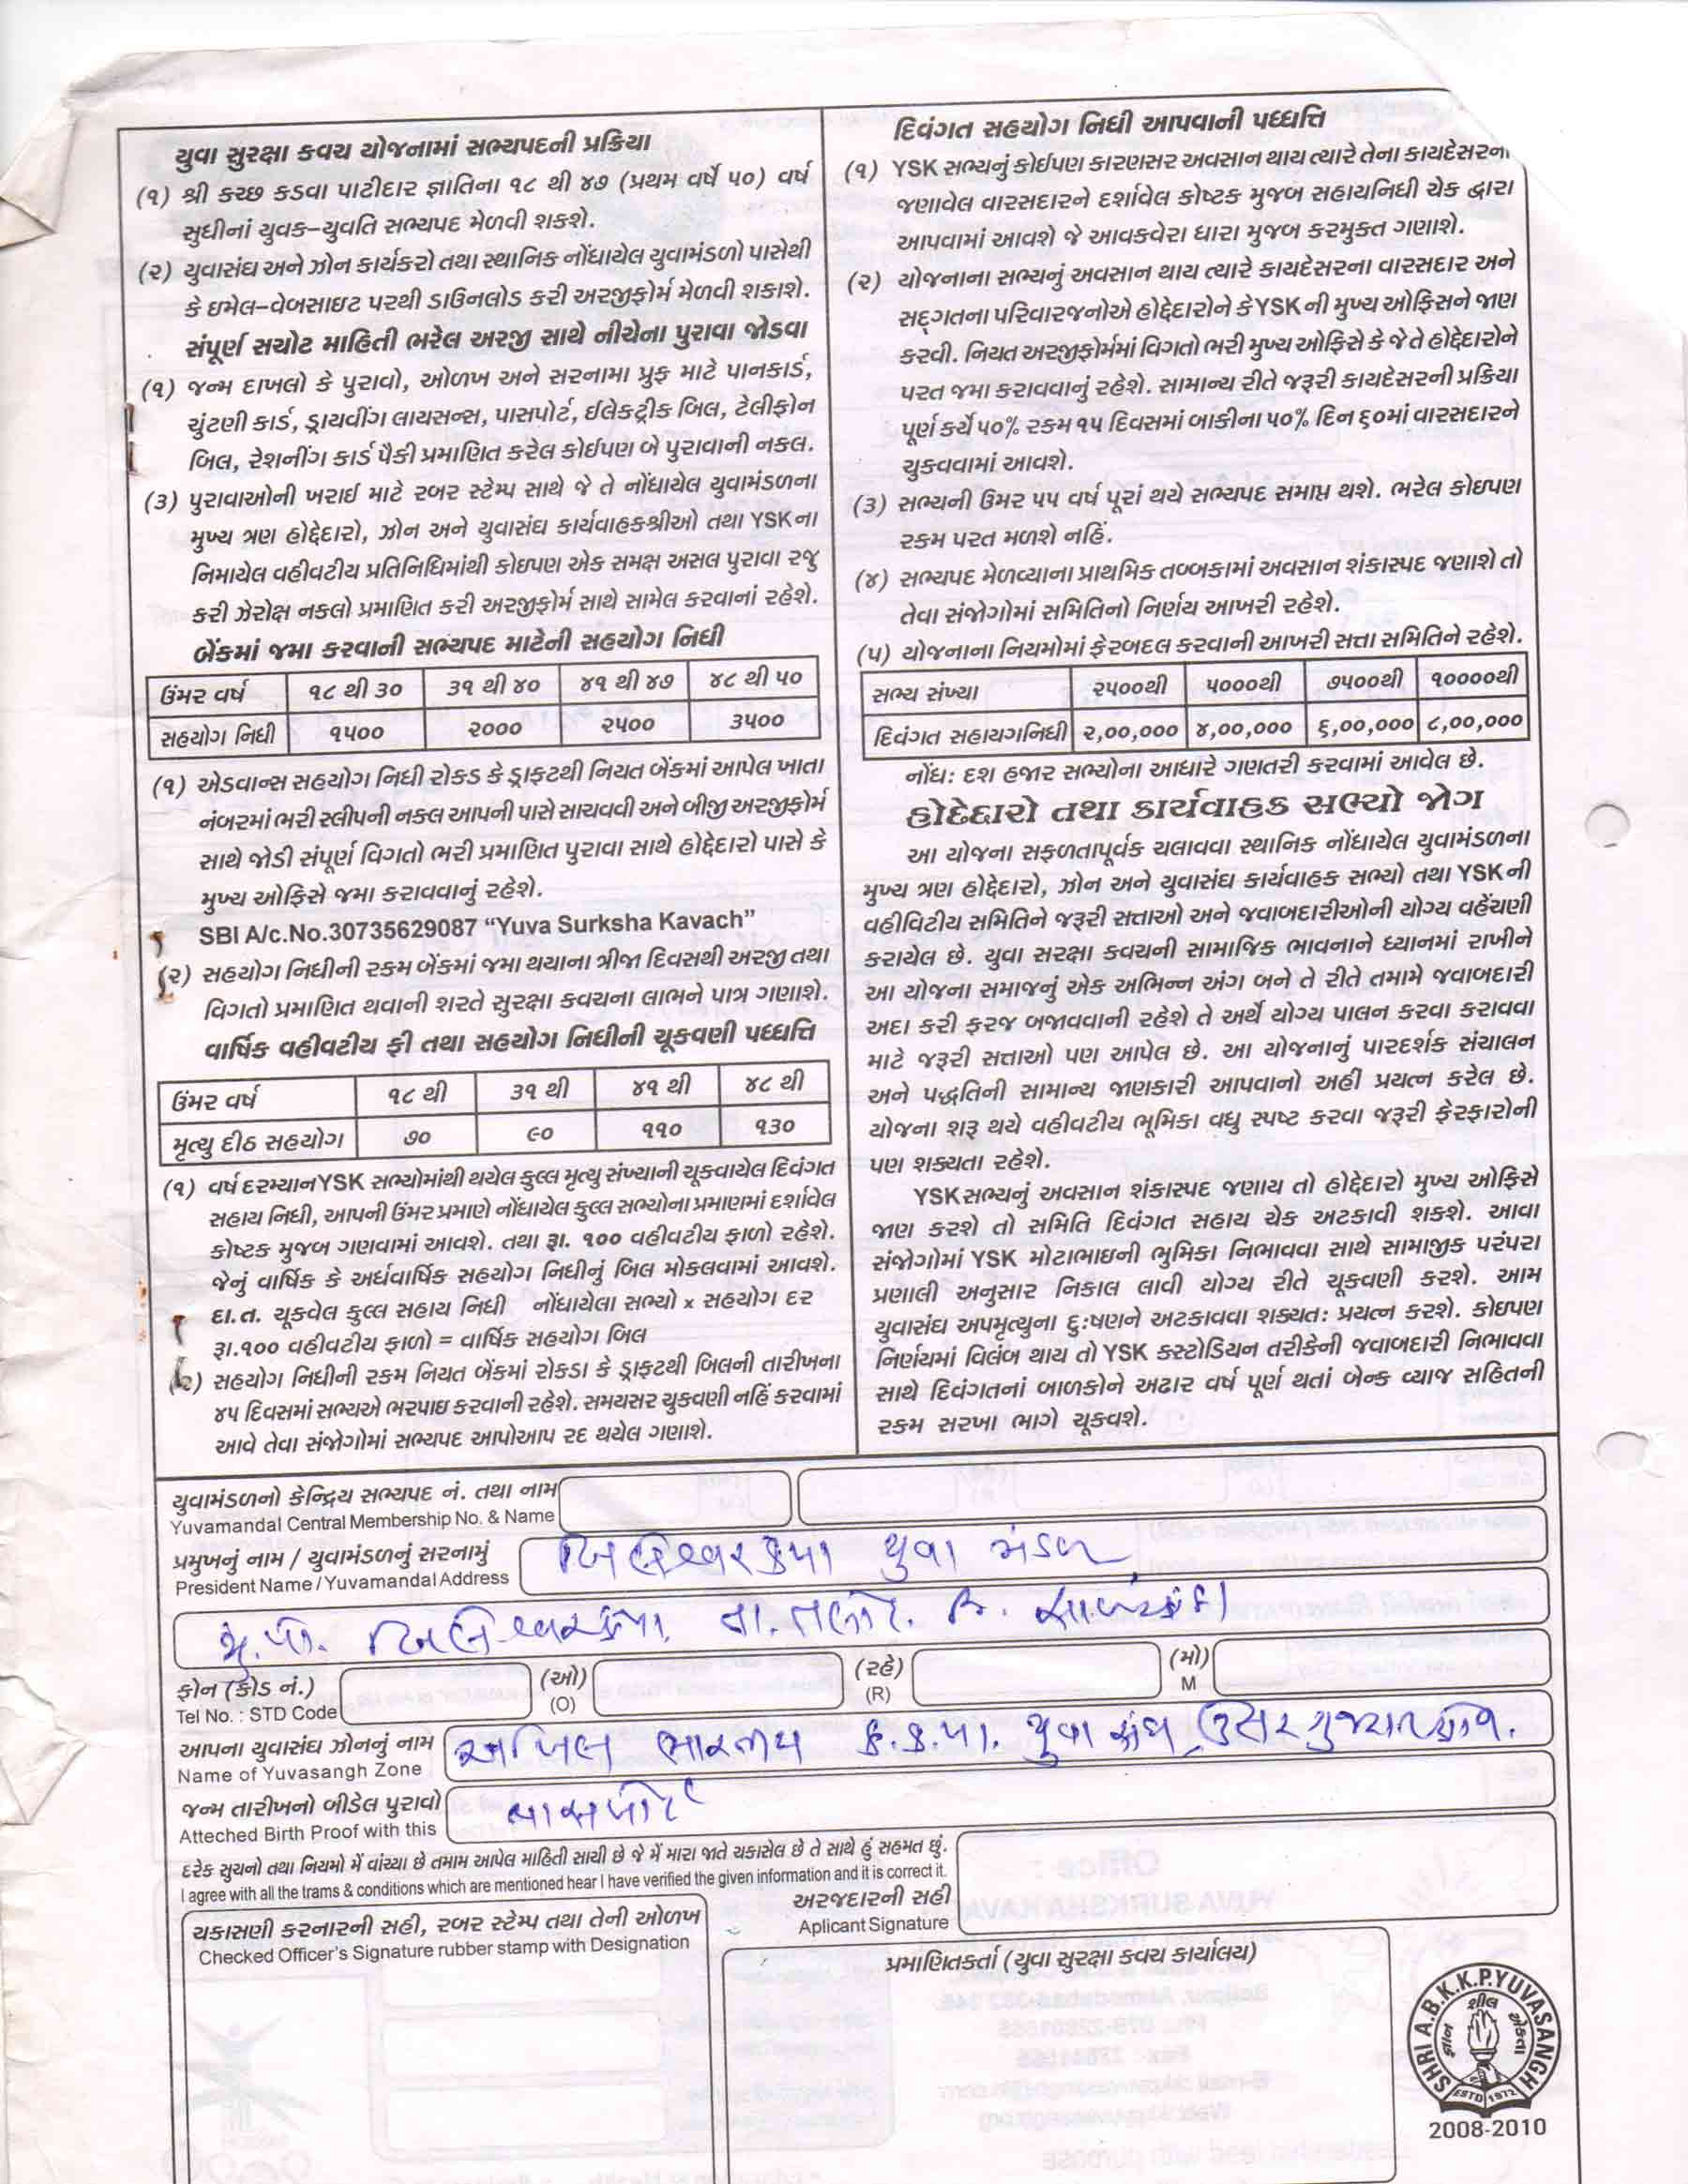 યુવા સુરક્ષા કવચ યોજનામાં સભ્યપદની પ્રક્રિયા
(૧) શ્રી કચ્છ કડવા પાટીદાર જ્ઞાતિના ૧૮ થી ૪૭ (પ્રથમ વર્ષે ૫૦) વર્ષ
સુધીનાં યુવક-યુવતિ સભ્યપદ મેળવી શકશે.
(૨) યુવાસંઘ અને ઝોન કાર્યકરો તથા સ્થાનિક નોંધાયેલ યુવામંડળો પાસેથી
કે ઇમેલ-વેબસાઇટ પરથી ડાઉનલોડ કરી અરજીફોર્મ મેળવી શકાશે.
સંપૂર્ણ સચોટ માહિતી ભરેલ અરજી સાથે નીચેના પુરાવા જોડવા
(૧) જન્મ દાખલો કે પુરાવો, ઓળખ અને સરનામા પ્રુફ માટે પાનકાર્ડ,
ચુંટણી કાર્ડ, ડ્રાયવીંગ લાયસન્સ, પાસપોર્ટ, ઈલેક્ટ્રીક બિલ, ટેલીફોન
બિલ, રેશનીંગ કાર્ડ પૈકી પ્રમાણિત કરેલ કોઈપણ બે પુરાવાની નકલ.
(૩) પુરાવાઓની ખરાઈ માટે રબર સ્ટેમ્પ સાથે જે તે નોંધાયેલ યુવામંડળના
મુખ્ય ત્રણ હોદ્દેદારો, ઝોન અને યુવાસંઘ કાર્યવાહકશ્રીઓ તથા YSK ના
નિમાયેલ વહીવટીય પ્રતિનિધિમાંથી કોઇપણ એક સમક્ષ અસલ પુરાવા રજુ
કરી ઝેરોક્ષ નકલો પ્રમાણિત કરી અરજીફોર્મ સાથે સામેલ કરવાનાં રહેશે.
બેંકમાં જમા કરવાની સભ્યપદ માટેની સહયોગ નિધી
ઉંમર વર્ષ ૧૮ થી ૩૦ ૩૧ થી ૪૦ ૪૧ થી ૪૭ ૪૮ થી ૫૦
સહયોગ નિધી ૧૫૦૦ ૨૦૦૦ ૨૫૦૦ ૩૫૦૦
(૧) એડવાન્સ સહયોગ નિધી રોકડ કે ડ્રાફટથી નિયત બેંકમાં આપેલ ખાતા
નંબરમાં ભરી સ્લીપની નકલ આપની પાસે સાચવવી અને બીજી અરજીફોર્મ
સાથે જોડી સંપૂર્ણ વિગતો ભરી પ્રમાણિત પુરાવા સાથે હોદ્દેદારો પાસે કે
મુખ્ય ઓફિસે જમા કરાવવાનું રહેશે.
SBI A/c.No.30735629087 “Yuva Surksha Kavach”
(૨) સહયોગ નિધીની રકમ બેંકમાં જમા થયાના ત્રીજા દિવસથી અરજી તથા
વિગતો પ્રમાણિત થવાની શરતે સુરક્ષા કવચના લાભને પાત્ર ગણાશે.
વાર્ષિક વહીવટીય ફી તથા સહયોગ નિધીની ચૂકવણી પધ્ધત્તિ
ઉંમર વર્ષ ૧૮ થી ૩૧ થી ૪૧ થી ૪૮ થી
મૃત્યુ દીઠ સહયોગ ૭૦ ૯૦ ૧૧૦ ૧૩૦
(૧) વર્ષ દરમ્યાન YSK સભ્યોમાંથી થયેલ કુલ્લ મૃત્યુ સંખ્યાની ચૂકવાયેલ દિવંગત
સહાય નિધી, આપની ઉંમર પ્રમાણે નોંધાયેલ કુલ્લ સભ્યોના પ્રમાણમાં દર્શાવેલ
કોષ્ટક મુજબ ગણવામાં આવશે. તથા રૂા. ૧૦૦ વહીવટીય ફાળો રહેશે.
જેનું વાર્ષિક કે અર્ધવાર્ષિક સહયોગ નિધીનું બિલ મોકલવામાં આવશે.
દા.ત. ચૂકવેલ કુલ્લ સહાય નિધી નોંધાયેલા સભ્યો x સહયોગ દર
રૂા.૧૦૦ વહીવટીય ફાળો = વાર્ષિક સહયોગ બિલ
(૨) સહયોગ નિધીની રકમ નિયત બેંકમાં રોકડા કે ડ્રાફટથી બિલની તારીખના
૪૫ દિવસમાં સભ્યએ ભરપાઇ કરવાની રહેશે. સમયસર ચુકવણી નહિં કરવામાં
આવે તેવા સંજોગોમાં સભ્યપદ આપોઆપ રદ થયેલ ગણાશે.
દિવંગત સહયોગ નિધી આપવાની પધ્ધત્તિ
(૧) YSK સભ્યનું કોઈપણ કારણસર અવસાન થાય ત્યારે તેના કાયદેસરના
જણાવેલ વારસદારને દર્શાવેલ કોષ્ટક મુજબ સહાયનિધી ચેક દ્વારા
આપવામાં આવશે જે આવકવેરા ધારા મુજબ કરમુક્ત ગણાશે.
(૨) યોજનાના સભ્યનું અવસાન થાય ત્યારે કાયદેસરના વારસદાર અને
સદ્ગતના પરિવારજનોએ હોદ્દેદારોને કે YSK ની મુખ્ય ઓફિસને જાણ
કરવી. નિયત અરજીફોર્મમાં વિગતો ભરી મુખ્ય ઓફિસે કે જે તે હોદ્દેદારોને
પરત જમા કરાવવાનું રહેશે. સામાન્ય રીતે જરૂરી કાયદેસરની પ્રક્રિયા
પૂર્ણ કર્યે ૫૦% રકમ ૧૫ દિવસમાં બાકીના ૫૦% દિન ૬૦માં વારસદારને
ચુકવવામાં આવશે.
(૩) સભ્યની ઉંમર ૫૫ વર્ષ પૂરાં થયે સભ્યપદ સમાપ્ત થશે. ભરેલ કોઇપણ
રકમ પરત મળશે નહિં.
(૪) સભ્યપદ મેળવ્યાના પ્રાથમિક તબ્બકામાં અવસાન શંકાસ્પદ જણાશે તો
તેવા સંજોગોમાં સમિતિનો નિર્ણય આખરી રહેશે.
(૫) યોજનાના નિયમોમાં ફેરબદલ કરવાની આખરી સત્તા સમિતિને રહેશે.
સભ્ય સંખ્યા ૨૫૦૦થી ૫૦૦૦થી ૭૫૦૦થી ૧૦૦૦૦થી
દિવંગત સહાયગનિધી ૨,૦૦,૦૦૦ ૪,૦૦,૦૦૦ ૬,૦૦,૦૦૦ ૮,૦૦,૦૦૦
નોંધ: દશ હજાર સભ્યોના આધારે ગણતરી કરવામાં આવેલ છે.
હોદ્દેદારો તથા કાર્યવાહક સભ્યો જોગ
આ યોજના સફળતાપૂર્વક ચલાવવા સ્થાનિક નોંધાયેલ યુવામંડળના
મુખ્ય ત્રણ હોદ્દેદારો, ઝોન અને યુવાસંઘ કાર્યવાહક સભ્યો તથા YSK ની
વહીવિટીય સમિતિને જરૂરી સત્તાઓ અને જવાબદારીઓની યોગ્ય વહેંચણી
કરાયેલ છે. યુવા સરક્ષા કવચની સામાજિક ભાવનાને ધ્યાનમાં રાખીને
આ યોજના સમાજનું એક અભિન્ન અંગ બને તે રીતે તમામે જવાબદારી
અદા કરી ફરજ બજાવવાની રહેશે તે અર્થે યોગ્ય પાલન કરવા કરાવવા
માટે જરૂરી સત્તાઓ પણ આપેલ છે. આ યોજનાનું પારદર્શક સંચાલન
અને પદ્ધતિની સામાન્ય જાણકારી આપવાનો અહીં પ્રયત્ન કરેલ છે.
યોજના શરૂ થયે વહીવટીય ભૂમિકા વધુ સ્પષ્ટ કરવા જરૂરી ફેરફારોની
પણ શક્યતા રહેશે.
YSK સભ્યનું અવસાન શંકાસ્પદ જણાય તો હોદ્દેદારો મુખ્ય ઓફિસે
જાણ કરશે તો સમિતિ દિવંગત સહાય ચેક અટકાવી શકશે. આવા
સંજોગોમાં YSK મોટાભાઇની ભુમિકા નિભાવવા સાથે સામાજીક પરંપરા
પ્રણાલી અનુસાર નિકાલ લાવી યોગ્ય રીતે ચૂકવણી કરશે. આમ
યુવાસંઘ અપમૃત્યુના દુ:ષણને અટકાવવા શક્યત: પ્રયત્ન કરશે. કોઇપણ
નિર્ણયમાં વિલંબ થાય તો YSK કસ્ટોડિયન તરીકેની જવાબદારી નિભાવવા
સાથે દિવંગતનાં બાળકોને અઢાર વર્ષ પૂર્ણ થતાં બેન્ક વ્યાજ સહિતની
રકમ સરખા ભાગે ચૂકવશે.
યુવામંડળનો કેન્દ્રિય સભ્યપદ નં. તથા નામ
Yuvamandal Central Membership No. & Name
પ્રમુખનું નામ / યુવામંડળનું સરનામું
President Name / Yuvamandal Address
યુવા મંડળ
મુ.પો. તા. તલોદ. જિ. સાબરકાંઠા
ફોન (કોડ નં.) (ઓ) (રહે) (મો)
Tel No. : STD Code (O) (R) M
આપના યુવાસંઘ ઝોનનું નામ અખિલ ભારતીય ક.ક.પા. યુવા સંઘ, ઉત્તર ગુજરાત ઝોન.
Name of Yuvasangh Zone
જન્મ તારીખનો બીડેલ પુરાવો પાસપોર્ટ
Atteched Birth Proof with this
દરેક સુચનો તથા નિયમો મેં વાંચ્યા છે તમામ આપેલ માહિતી સાચી છે જે મેં મારા જાતે ચકાસેલ છે તે સાથે હું સહમત છું.
I agree with all the trams & conditions which are mentioned hear I have verified the given information and it is correct it.
અરજદારની સહી
Aplicant Signature
ચકાસણી કરનારની સહી, રબર સ્ટેમ્પ તથા તેની ઓળખ
Checked Officer's Signature rubber stamp with Designation
પ્રમાણિતકર્તા (યુવા સુરક્ષા કવચ કાર્યાલય)
SHRI A.B.K.K.P.YUVASANGH
શીલ
જ્ઞાન
એકતા
ESTD 1972
2008-2010